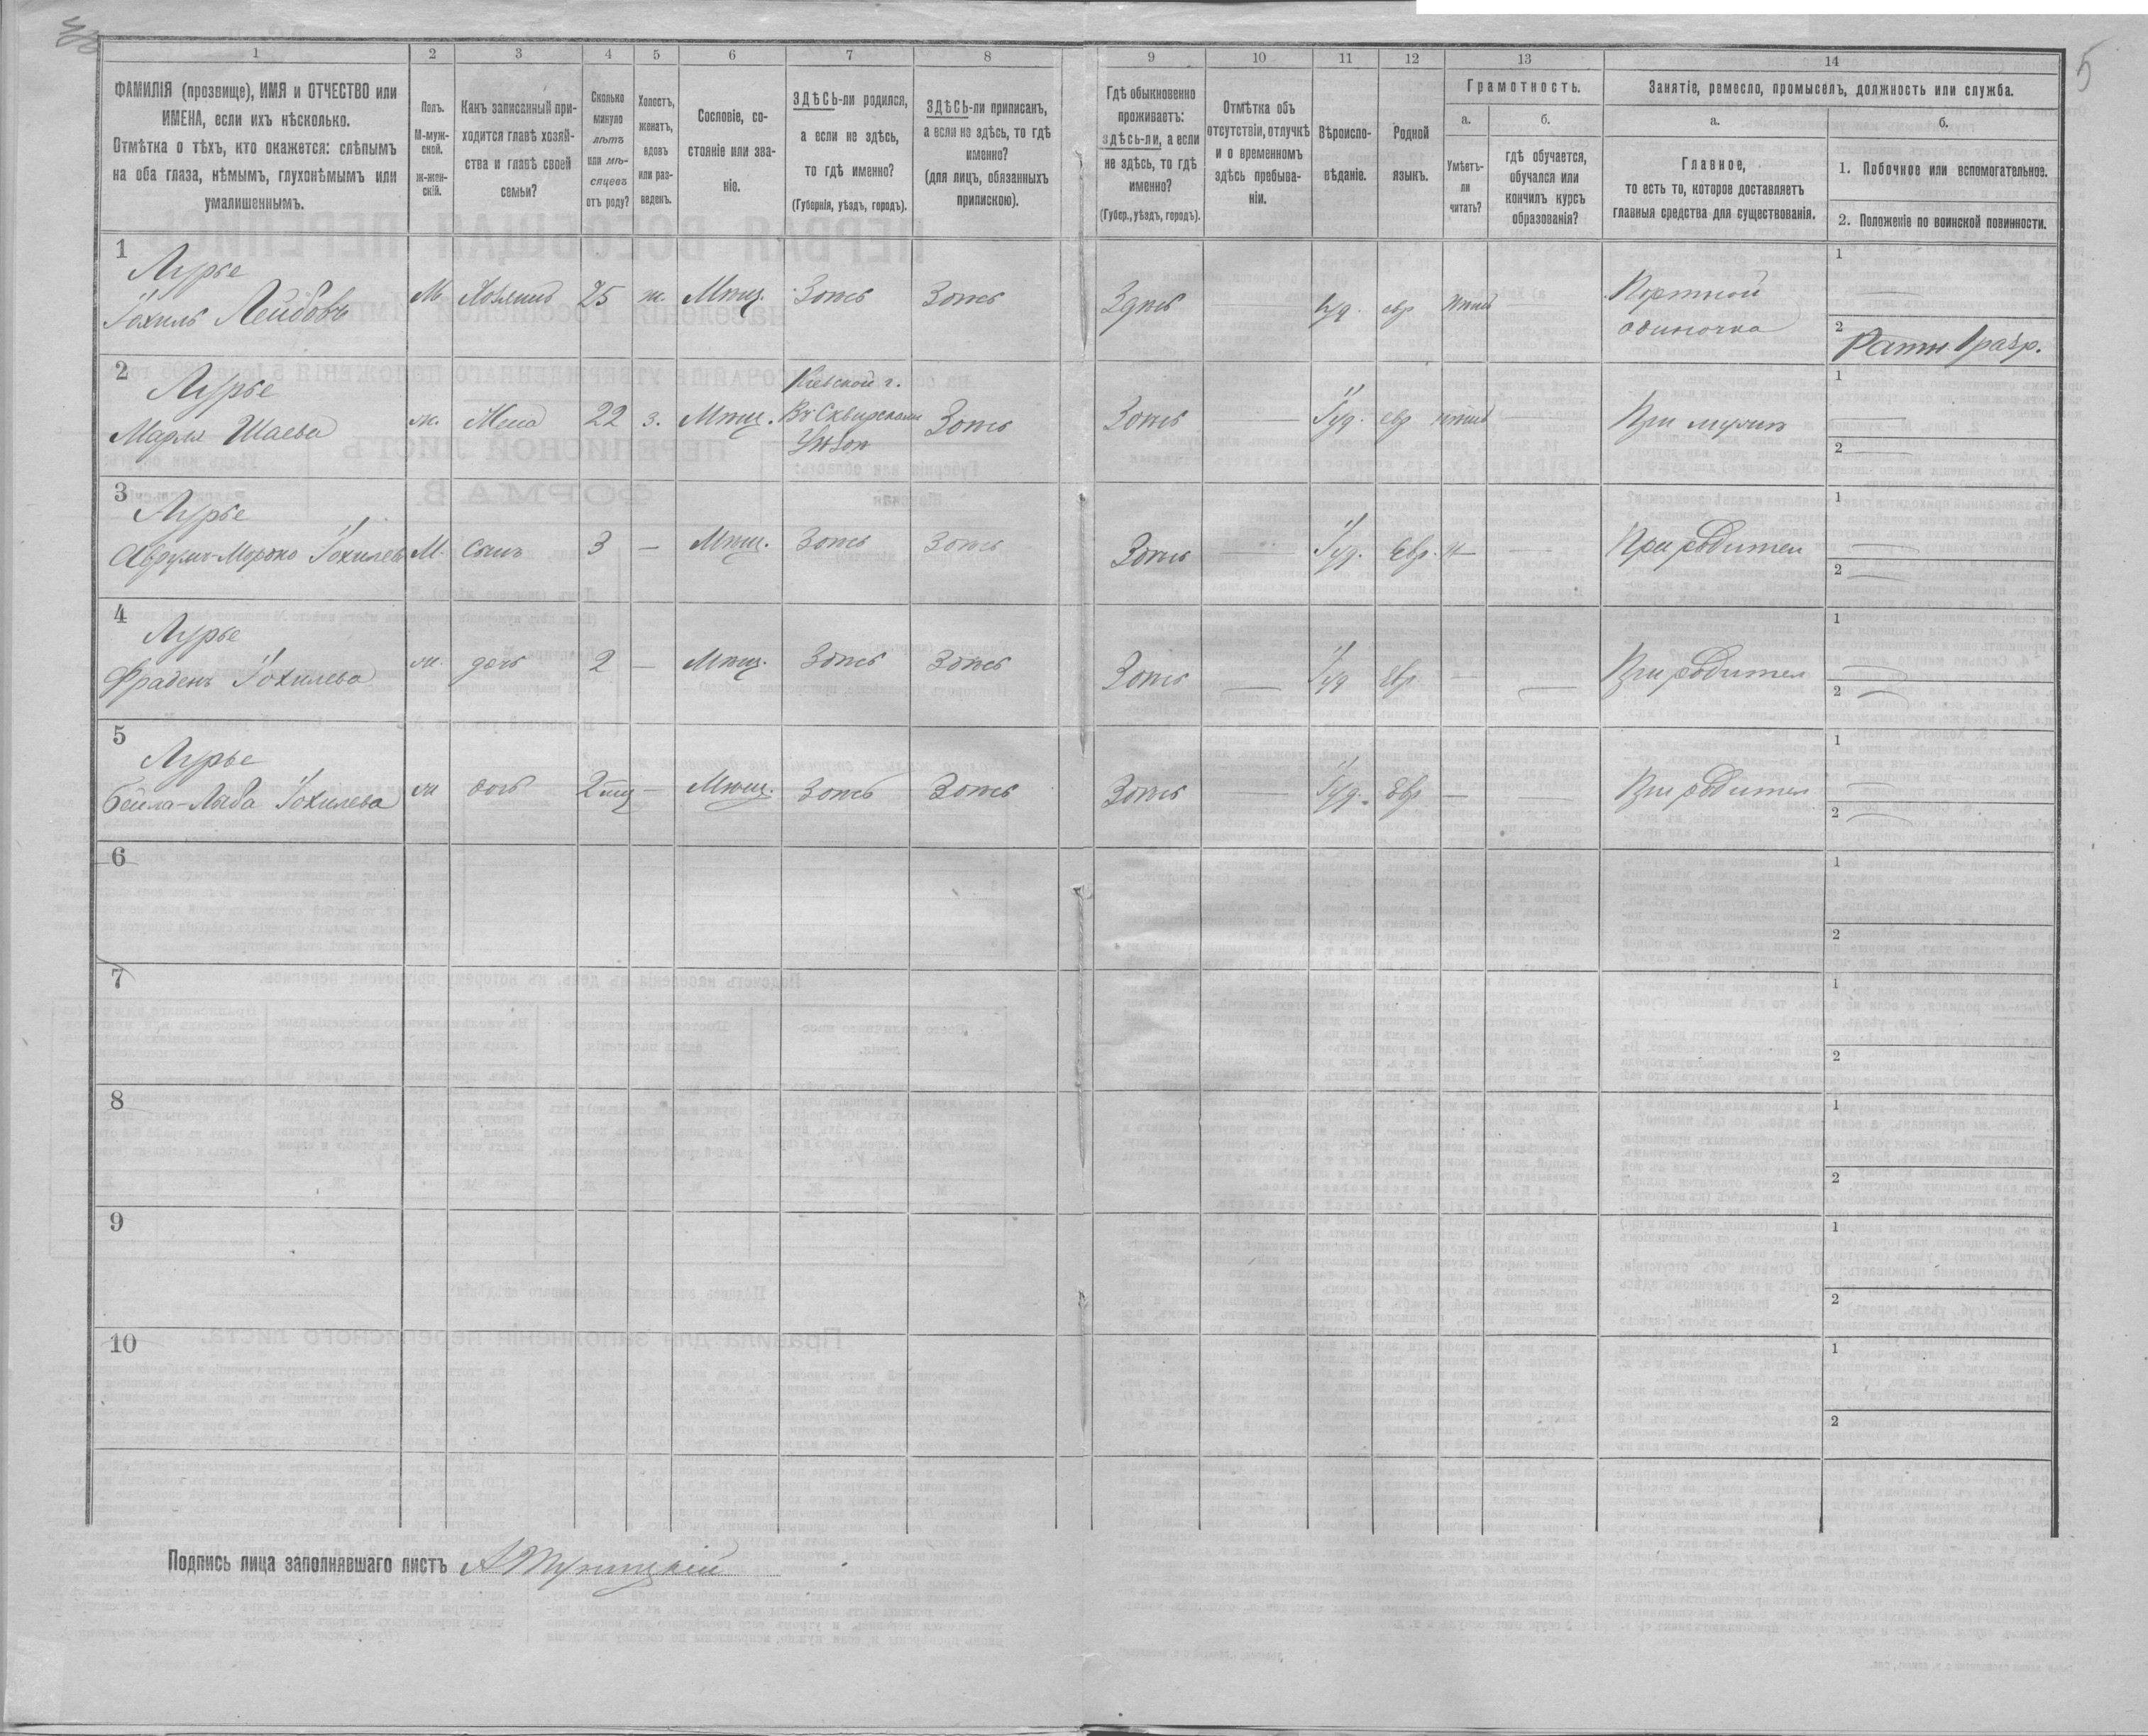 5
1 2 3 4 5 6 7 8 9 10 11 12 13 14
ФАМИЛІЯ (прозвище), ИМЯ и ОТЧЕСТВО или
ИМЕНА, если ихъ нѣсколько.
Отмѣтка о тѣхъ, кто окажется: слѣпымъ
на оба глаза, нѣмымъ, глухонѣмымъ или
умалишеннымъ.
Полъ.
М-муж-
ской.
Ж-жен-
скій.
Какъ записанный при-
ходится главѣ хозяй-
ства и главѣ своей
семьи?
Сколько
минуло
лѣтъ
или мѣ-
сяцевъ
отъ роду?
Холостъ,
женатъ,
вдовъ
или раз-
веденъ.
Сословіе, со-
стояніе или зва-
ніе.
ЗДѢСЬ-ли родился,
а если не здѣсь,
то гдѣ именно?
(Губернія, уѣздъ, городъ).
ЗДѢСЬ-ли приписанъ,
а если не здѣсь, то гдѣ
именно?
(для лицъ, обязанныхъ
припискою).
Гдѣ обыкновенно
проживаетъ:
здѣсь-ли, а если
не здѣсь, то гдѣ
именно?
(Губер., уѣздъ, городъ).
Отмѣтка объ
отсутствіи, отлучкѣ
и о временномъ
здѣсь пребыва-
ніи.
Вѣроиспо-
вѣданіе.
Родной
языкъ.
Грамотность.
а.
Умѣетъ-
ли
читать?
б.
гдѣ обучается,
обучался или
кончилъ курсъ
образованія?
Занятіе, ремесло, промыселъ, должность или служба.
а.
Главное,
то есть то, которое доставляетъ
главныя средства для существованія.
б.
1. Побочное или вспомогательное.
2. Положеніе по воинской повинности.
1
Лурье
Іохиль Лейбовъ
М Хозяинъ 25 ж. Мѣщ. Здѣсь Здѣсь Здѣсь Іуд. евр
Портной
одиночка
1
2
Ратн. 1 разр.
2
Лурье
Маря Шаева
ж. Жена 22 з. Мѣщ.
Кіевской г.
Въ Сквирскомъ
Уѣздѣ
Здѣсь Здѣсь — Іуд. евр
При мужѣ
1 —
2
3
Лурье
Аврумъ-Мордко Іохилевъ
М. Сынъ 3 — Мѣщ. Здѣсь Здѣсь Здѣсь — Іуд. Евр. — —
При родител
1 —
2 —
4
Лурье
Фраденъ Іохилева
ж. дочь 2 — Мѣщ. Здѣсь Здѣсь Здѣсь — Іуд Евр — —
При родител
1 —
2 —
5
Лурье
Бейла-Лыба Іохилева
ж дочь 2 мц — Мѣщ. Здѣсь Здѣсь Здѣсь — Іуд. Евр — —
При родител
1 —
2 —
6
1
2
7
1
2
8
1
2
9
1
2
10
1
2
Подпись лица заполнявшаго листъ